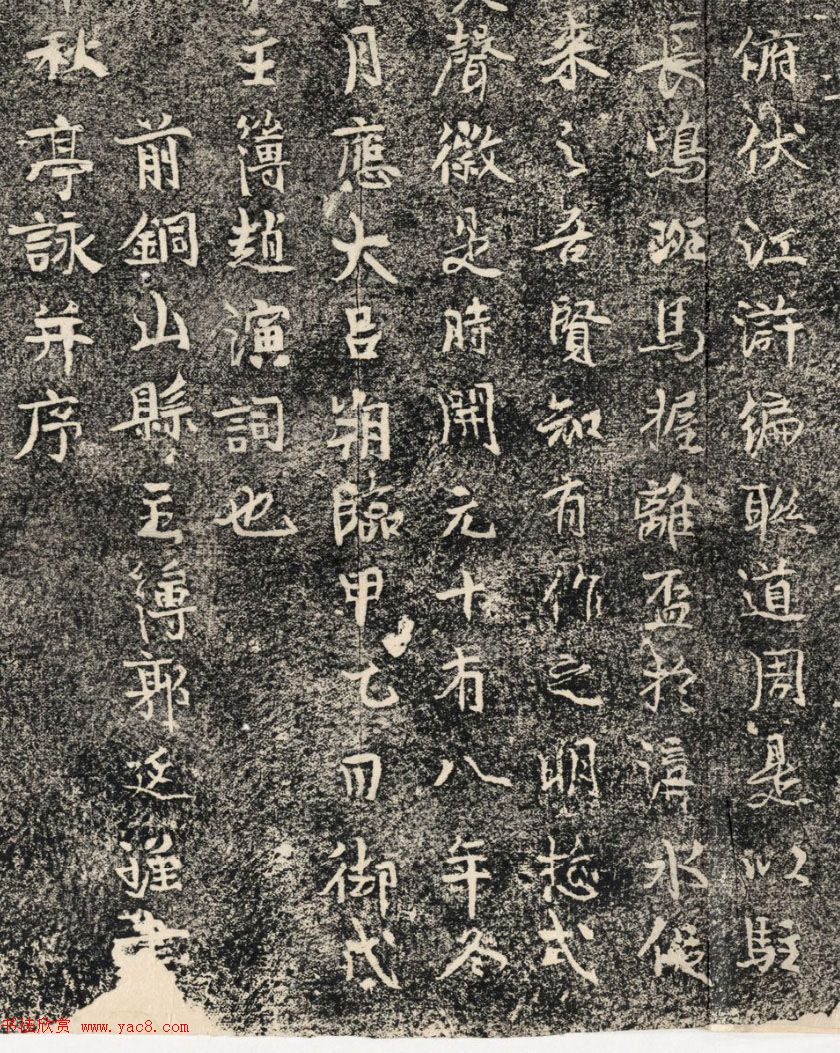 俯伏江滸編聯道周是以駐
長鳴班馬握離盃於濟水促
来之吾賢知有作之明愻式
聲徽是時開元十有八年冬
月應大呂朔臨甲乙日御戊
主簿趙演詞也
前銅山縣主簿郭延瓘書
秋亭詠并序
书法欣赏 www.yac8.com